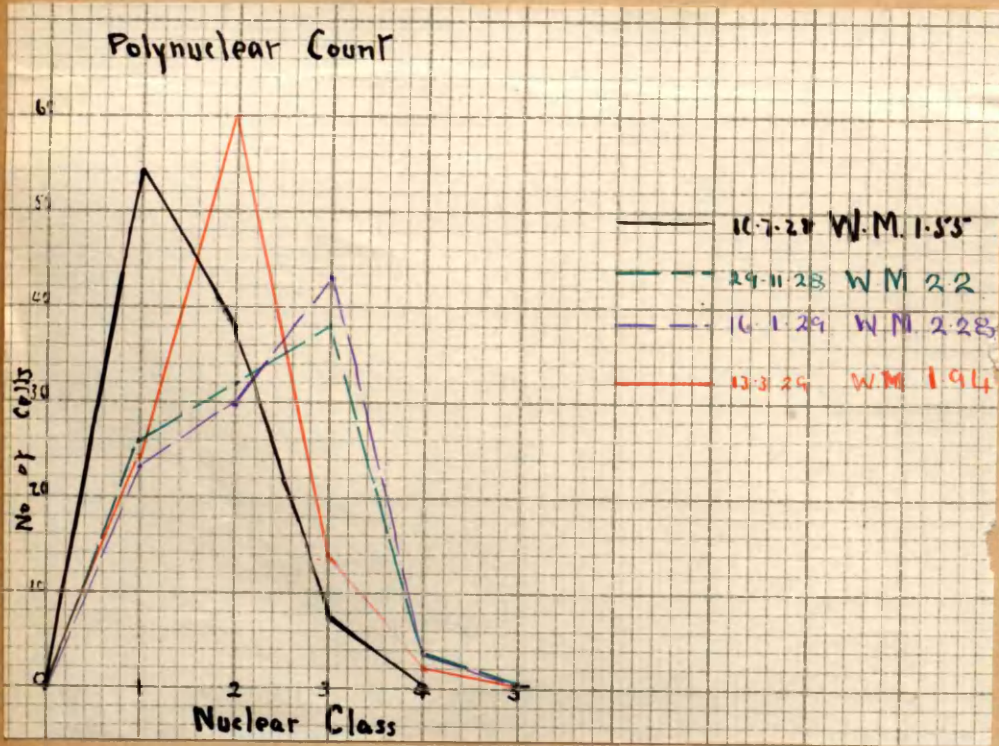 Polynuclear Count
60
50
40
30
20
10
0
No of Cells
1 2 3 4 5
Nuclear Class
16.7.28 W.M. 1.55
29.11.28 W M 2 2
16.1.29 W.M. 2.28
13.3.29 W.M 1.94